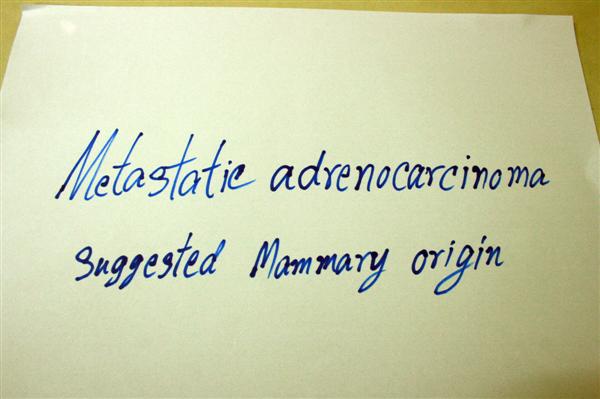 Metastatic adrenocarcinoma
Suggested Mammary origin